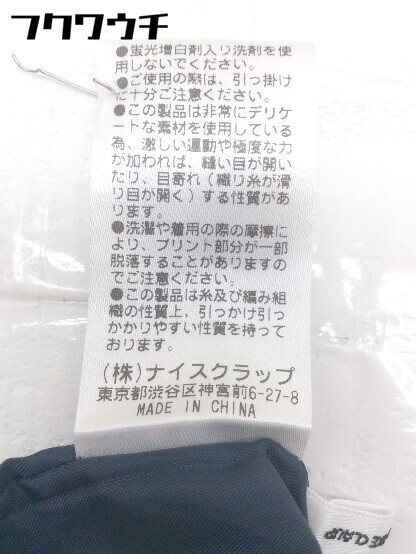 フクワウチ
●蛍光増白剤入り洗剤を使
用しないでください。
●ご使用の際は、引っ掛け
に十分ご注意ください。
●この製品は非常にデリケ
ートな素材を使用している
為、激しい運動や極度な力
が加われば、縫い目が開い
たり、目寄れ(織り糸が滑
り目が開く)する性質があ
ります。
●洗濯や着用の際の摩擦に
より、プリント部分が一部
脱落することがありますの
でご注意ください。
●この製品は糸及び編み組
織の性質上、引っかけ引っ
かかりやすい性質を持って
おります。
(株)ナイスクラップ
東京都渋谷区神宮前6-27-8
MADE IN CHINA
CLAUP